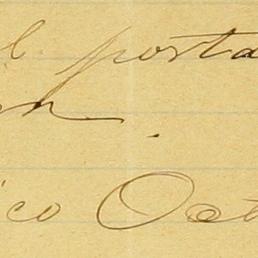 l porta
en.
ico Oct